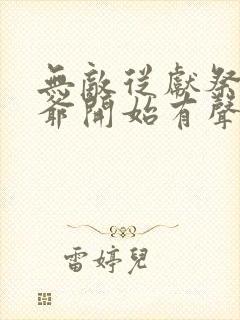 無敵從獻祭
爺開始有聲
雷婷兒